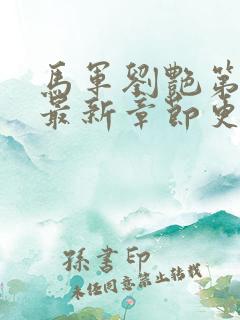 馬軍劉艷第
最新章節更
孫書印
未经同意禁止转载